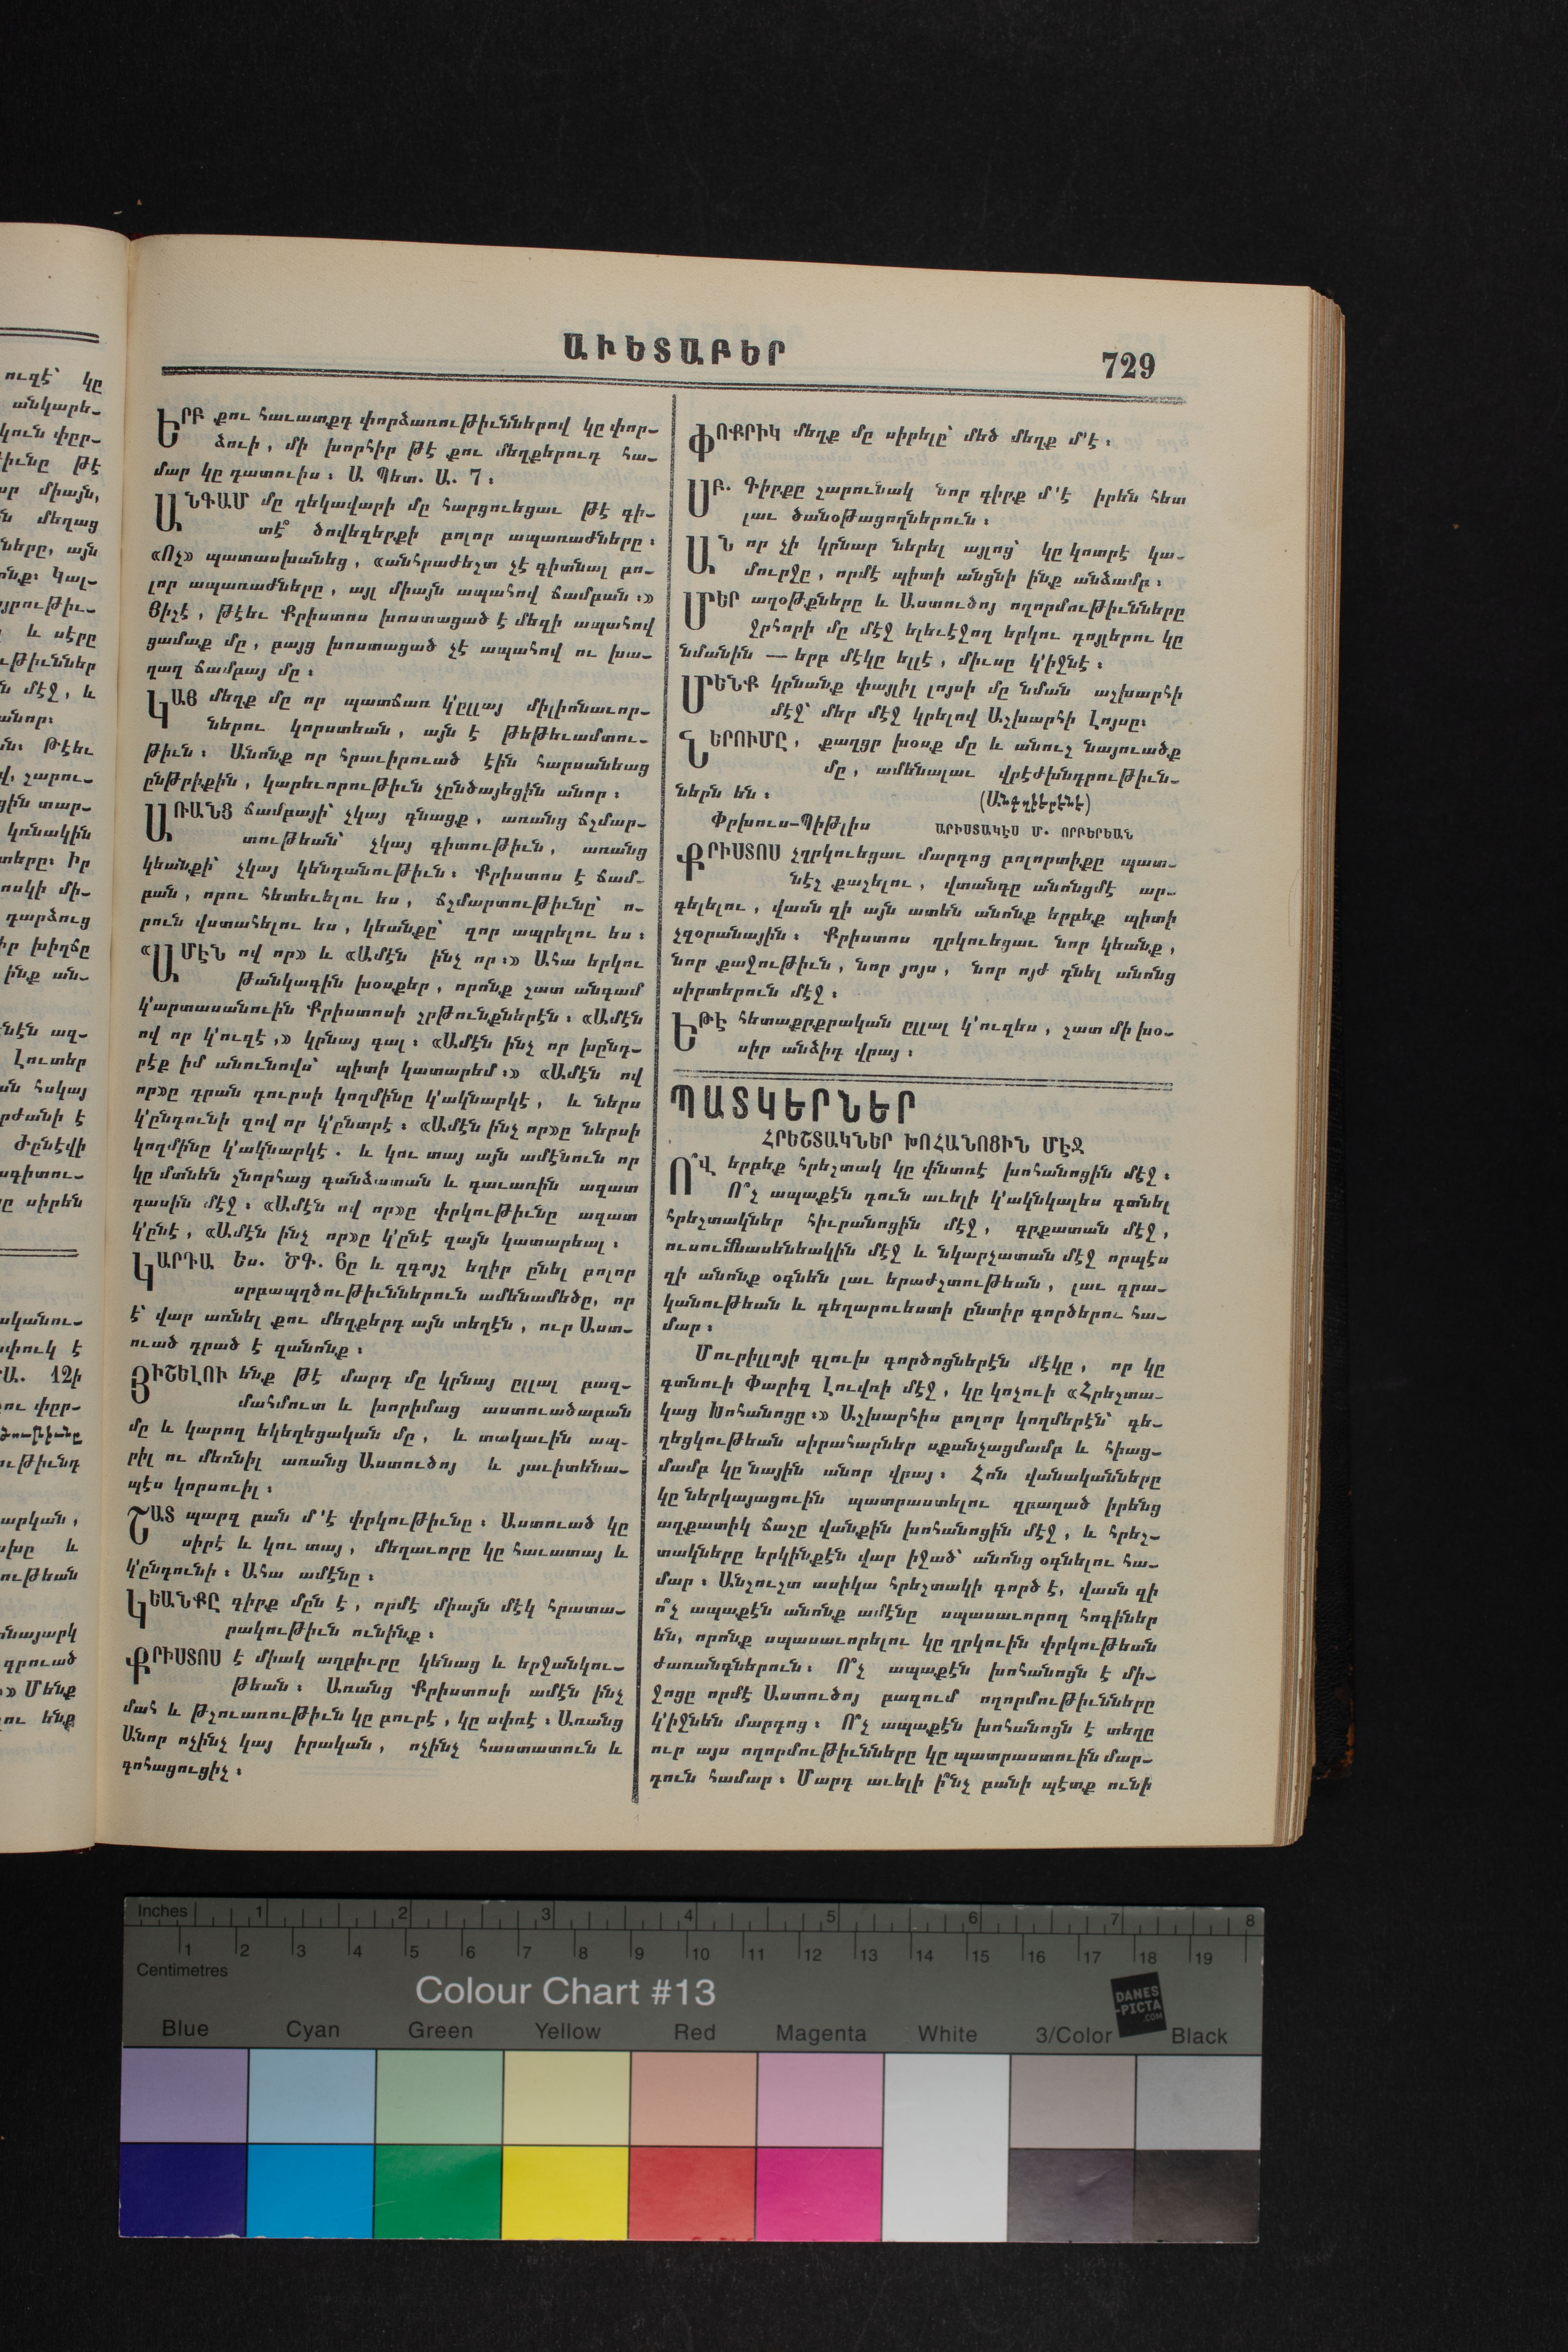 ԱՒԵՏԱԲԵՐ
729
ԵՐԲ քու հաւատքդ փորձառութիւններով կը փոր-
ձուի, մի խորհիր թէ քու մեղքերուդ հա-
մար կը դատուիս։ Ա Պետ. Ա. 7։
ԱՆԳԱՄ մը ղեկավարի մը հարցուեցաւ թէ գի-
տէ՞ ծովեզերքի բոլոր ապառաժները։
«Ոչ» պատասխանեց, «անհրաժեշտ չէ գիտնալ բո-
լոր ապառաժները, այլ միայն ապահով ճամբան։»
Յիշէ, թէեւ Քրիստոս խոստացած է մեզի ապահով
ցամաք մը, բայց խոստացած չէ ապահով ու խա-
ղաղ ճամբայ մը։
ԿԱՅ մեղք մը որ պատճառ կ՚ըլլայ միլիոնաւոր-
ներու կորստեան, այն է թեթեւամտու-
թիւն։ Անոնք որ հրաւիրուած էին հարսանեաց
ընթրիքին, կարեւորութիւն չընծայեցին անոր։
ԱՌԱՆՑ ճամբայի՝ չկայ գնացք, առանց ճշմար-
տութեան՝ չկայ գիտութիւն, առանց
կեանքի՝ չկայ կենդանութիւն։ Քրիստոս է ճամ-
բան, որու հետեւելու ես, ճշմարտութիւնը՝ ո-
րուն վստահելու ես, կեանքը՝ զոր ապրելու ես։
«ԱՄԷՆ ով որ» և «Ամէն ինչ որ։» Ահա երկու
թանկագին խօսքեր, որոնք շատ անգամ
կ՚արտասանուին Քրիստոսի շրթունքներէն։ «Ամէն
ով որ կ՚ուզէ,» կրնայ գալ։ «Ամէն ինչ որ խընդ-
րէք իմ անունովս՝ պիտի կատարեմ։» «Ամէն ով
որ»ը դրան դուրսի կողմինը կ՚ակնարկէ, և ներս
կ՚ընդունի զով որ կ՚ընտրէ։ «Ամէն ինչ որ»ը ներսի
կողմինը կ՚ակնարկէ. և կու տայ այն ամէնուն որ
կը մտնեն շնորհաց գանձատան և գաւառին ազատ
դասին մէջ։ «Ամէն ով որ»ը փրկութիւնը ազատ
կ՚ընէ, «Ամէն ինչ որ»ը կ՚ընէ զայն կատարեալ։
ԿԱՐԴԱ Ես. ԾԳ. 6ը և զգոյշ եղիր ընել բոլոր
սրբապղծութիւններուն ամենամեծը, որ
է՝ վար առնել քու մեղքերդ այն տեղէն, ուր Աստ-
ուած դրած է զանոնք։
ՅԻՇԵԼՈՒ ենք թէ մարդ մը կրնայ ըլլալ բազ-
մահմուտ և խորիմաց աստուածաբան
մը և կարող եկեղեցական մը, և տակաւին ապ-
րիլ ու մեռնիլ առանց Աստուծոյ և յաւիտենա-
պէս կորսուիլ։
ՇԱՏ պարզ բան մ՚է փրկութիւնը։ Աստուած կը
սիրէ և կու տայ, մեղաւորը կը հաւատայ և
կ՚ընդունի։ Ահա ամէնը։
ԿԵԱՆՔԸ գիրք մըն է, որմէ միայն մէկ հրատա-
րակութիւն ունինք։
ՔՐԻՍՏՈՍ է միակ աղբիւրը կենաց և երջանկու-
թեան։ Առանց Քրիստոսի ամէն ինչ
մահ և թշուառութիւն կը բուրէ, կը սփռէ։ Առանց
Անոր ոչինչ կայ իրական, ոչինչ հաստատուն և
գոհացուցիչ։
ՓՈՔՐԻԿ մեղք մը սիրելը՝ մեծ մեղք մ՚է։
ՍԲ. Գիրքը շարունակ նոր գիրք մ՚է իրեն հետ
լաւ ծանօթացողներուն։
ԱՆ որ չի կրնար ներել այլոց՝ կը կոտրէ կա-
մուրջը, որմէ պիտի անցնի ինք անձամբ։
ՄԵՐ աղօթքները և Աստուծոյ ողորմութիւնները
ջրհորի մը մէջ ելեւէջող երկու դոյլերու կը
նմանին — երբ մէկը ելլէ, միւսը կ՚իջնէ։
ՄԵՆՔ կրնանք փայլիլ լոյսի մը նման աշխարհի
մէջ՝ մեր մէջ կրելով Աշխարհի Լոյսը։
ՆԵՐՈՒՄԸ, քաղցր խօսք մը և անուշ նայուածք
մը, ամենալաւ վրէժխնդրութիւն-
ներն են։
(Անգղիերէնէ)
Փրխուս-Պիթլիս ԱՐԻՍՏԱԿԷՍ Մ. ՈՐԲԵՐԵԱՆ
ՔՐԻՍՏՈՍ չղրկուեցաւ մարդոց բոլորտիքը պատ-
նէշ քաշելու, վտանգը անոնցմէ ար-
գելելու, վասն զի այն ատեն անոնք երբեք պիտի
չզօրանային։ Քրիստոս ղրկուեցաւ նոր կեանք,
նոր քաջութիւն, նոր յոյս, նոր ոյժ դնել անոնց
սիրտերուն մէջ։
ԵԹԷ հետաքրքրական ըլլալ կ՚ուզես, շատ մի խօ-
սիր անձիդ վրայ։
ՊԱՏԿԵՐՆԵՐ
ՀՐԵՇՏԱԿՆԵՐ ԽՈՀԱՆՈՑԻՆ ՄԷՋ
Ո՞Վ երբեք հրեշտակ կը փնտռէ խոհանոցին մէջ։
Ո՞չ ապաքէն դուն աւելի կ՚ակնկալես գտնել
հրեշտակներ հիւրանոցին մէջ, գրքատան մէջ,
ուսումնասենեակին մէջ և նկարչատան մէջ որպէս
զի անոնք օգնեն լաւ երաժշտութեան, լաւ գրա-
կանութեան և գեղարուեստի ընտիր գործերու հա-
մար։
Մուրիլլոյի գլուխ գործոցներէն մէկը, որ կը
գտնուի Փարիզ Լուվռի մէջ, կը կոչուի «Հրեշտա-
կաց Խոհանոցը։» Աշխարհիս բոլոր կողմերէն՝ գե-
ղեցկութեան սիրահարներ սքանչացմամբ և հիաց-
մամբ կը նային անոր վրայ։ Հոն վանականները
կը ներկայացուին պատրաստելու զբաղած իրենց
աղքատիկ ճաշը վանքին խոհանոցին մէջ, և հրեշ-
տակները երկինքէն վար իջած՝ անոնց օգնելու հա-
մար։ Անշուշտ ասիկա հրեշտակի գործ է, վասն զի
ո՞չ ապաքէն անոնք ամէնը սպասաւորող հոգիներ
են, որոնք սպասաւորելու կը ղրկուին փրկութեան
ժառանգներուն։ Ո՞չ ապաքէն խոհանոցն է մի-
ջոցը որմէ Աստուծոյ բազում ողորմութիւնները
կ՚իջնեն մարդոց։ Ո՞չ ապաքէն խոհանոցն է տեղը
ուր այս ողորմութիւնները կը պատրաստուին մար-
դուն համար։ Մարդ աւելի ի՞նչ բանի պէտք ունի
Inches 1 2 3 4 5 6 7 8
1 2 3 4 5 6 7 8 9 10 11 12 13 14 15 16 17 18 19
Centimetres
Colour Chart #13
DANES
-PICTA
.COM
Blue Cyan Green Yellow Red Magenta White 3/Color Black